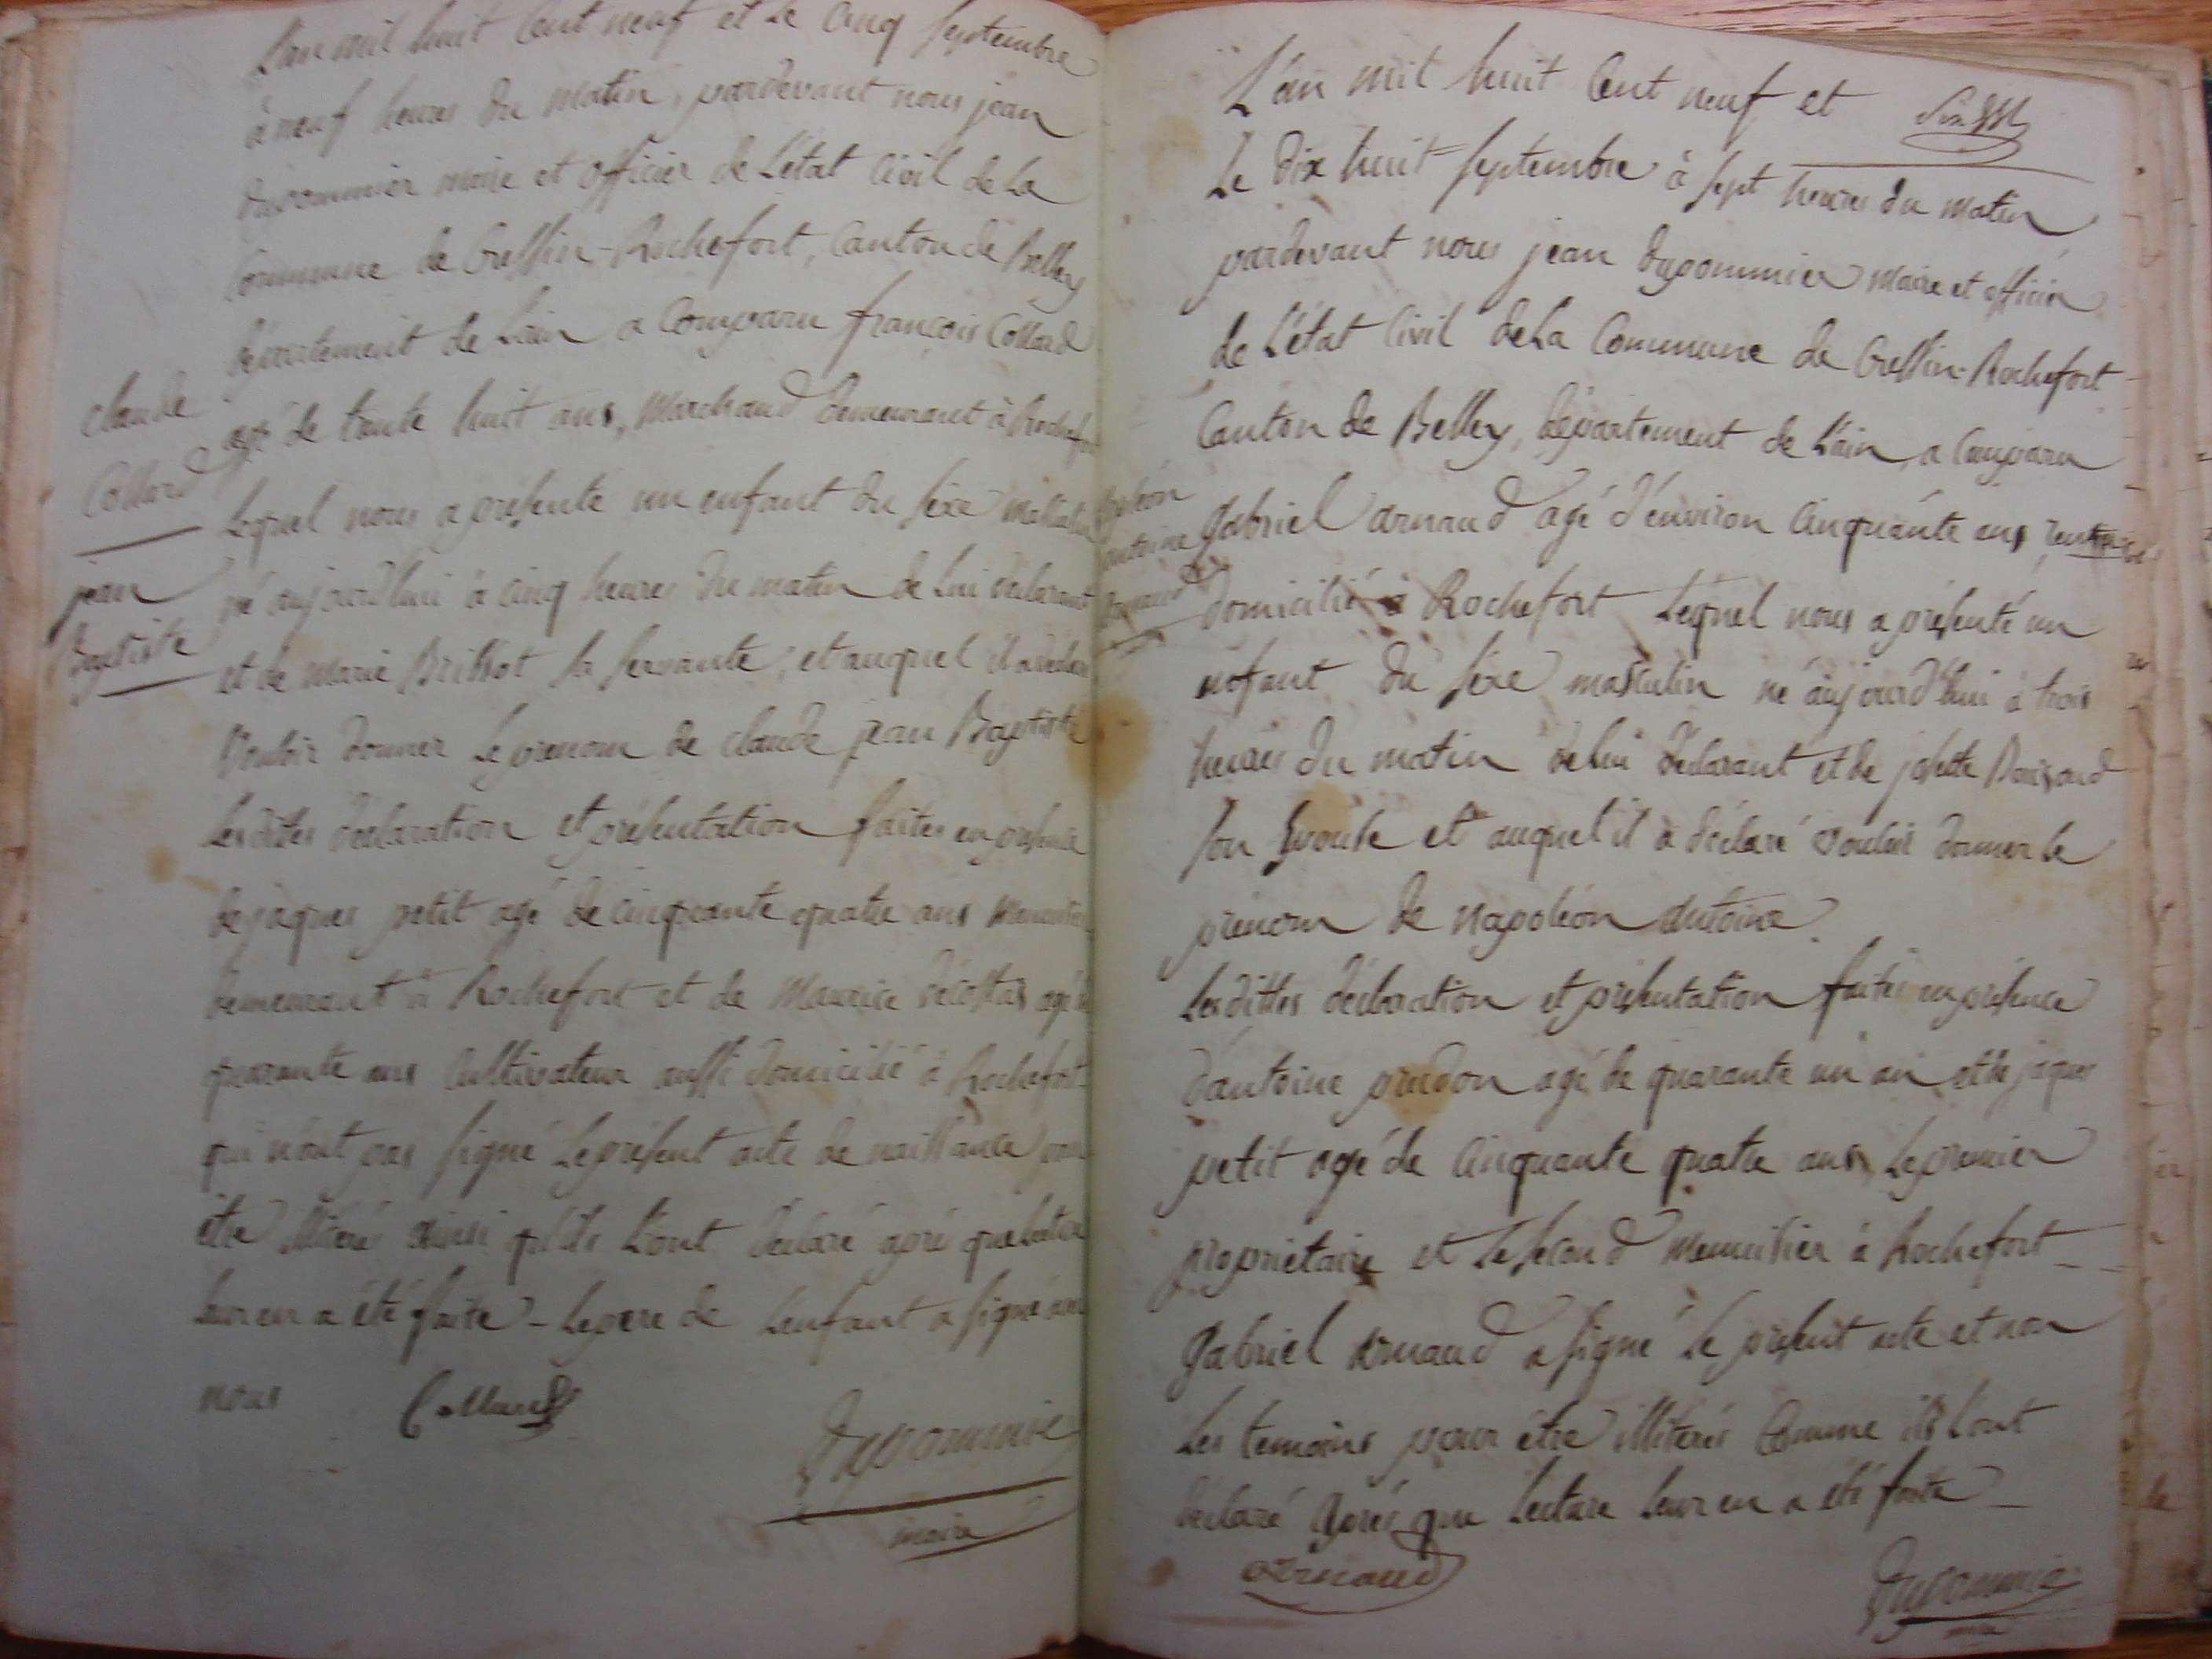 L'an mil huit Cent neuf et Le Cinq Septembre
à neuf heures du matin, pardevant nous jean
Dupommier maire et officier de L'état Civil de La
Commune de Cressin-Rochefort, Canton de Belley
département de Lain, a Comparu françois Collard
agé de trente huit ans, Marchand demeurant à Rochefort
claude
Collard
Lequel nous a présenté un enfant du sexe masculin
né aujourd'hui à cinq heures du matin de Lui déclarant
jean
Baptiste
et de Marie Brissot sa servante, et auquel il a déclaré
Vouloir donner Le prenom de claude jean Baptiste
Lesdites déclaration et présentation faites en présence
de jaques petit agé de cinquante quatre ans Menuisier
demeurant à Rochefort et de Maurice agé de
quarante ans Cultivateur aussi domicilié à Rochefort
qui n'ont pas signé Le présent acte de naissance pour
être illiterés ainsi qu'ils L'ont déclaré après que Lecture
Leur en a été faite - Le pere de L'enfant a signé avec
nous Collard
Dupommier
maire
L'an mil huit Cent neuf et
Le dix huit Septembre à sept heures du matin
pardevant nous jean Dupommier Maire et officier
de L'état Civil de La Commune de Cressin-Rochefort
Canton de Belley, département de L'ain, a Comparu
Napoléon
antoine
arnaud
gabriel arnaud agé d'environ Cinquante ans
domicilié à Rochefort Lequel nous a présenté un
enfant du sexe masculin né aujourd'hui à trois
heures du matin de lui déclarant et de josette
son Epouse et auquel il a déclaré vouloir donner le
prenom de Napoléon Antoine.
Lesdittes déclaration et présentation faites en présence
d'antoine agé de quarante un an et de jaques
petit agé de Cinquante quatre ans, Le premier
propriétaire et Le second Menuisier à Rochefort
Gabriel Arnaud a signé Le présent acte et non
Les temoins pour être illiterés Comme ils L'ont
déclaré Après que Lecture Leur en a été faite
arnaud
Dupommier